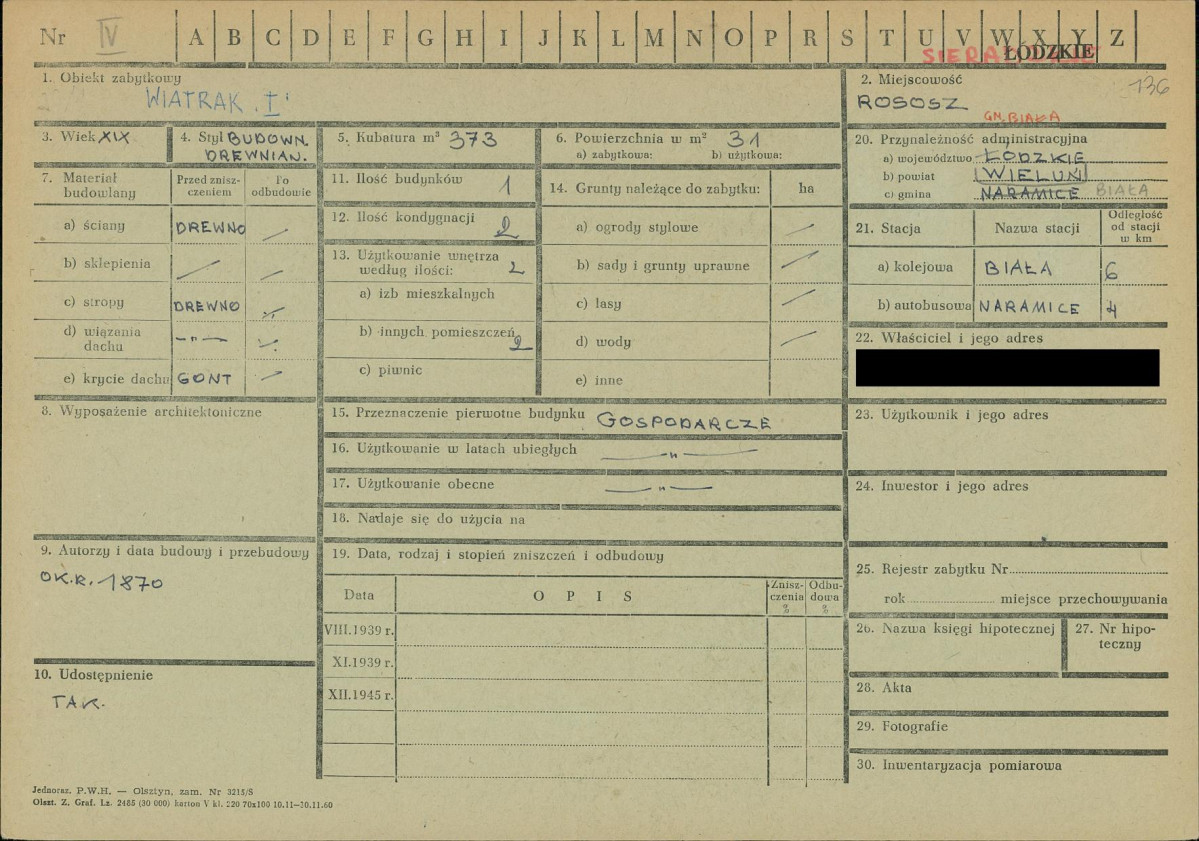 Nr IV A B C D E F G H I J K L M N O P R S T U V W X Y Z
ŁÓDZKIE
1. Obiekt zabytkowy
WIATRAK . I
2. Miejscowość
136
ROSOSZ
GM. BIAŁA
3. Wiek XIX
4. Styl BUDOWN. DREWNIAN.
5. Kubatura m³ 373
6. Powierzchnia w m² 31
a) zabytkowa: b) użytkowa:
20. Przynależność administracyjna
a) województwo ŁÓDZKIE
b) powiat WIELUŃ
c) gmina NARAMICE BIAŁA
7. Materiał budowlany
Przed zniszczeniem
Po odbudowie
a) ściany DREWNO —
b) sklepienia — —
c) stropy DREWNO -//-
d) wiązania dachu -"- -//-
e) krycie dachu GONT —
11. Ilość budynków 1
12. Ilość kondygnacji 2
13. Użytkowanie wnętrza według ilości: 2
a) izb mieszkalnych
b) innych pomieszczeń 2
c) piwnic
14. Grunty należące do zabytku: ha
a) ogrody stylowe —
b) sady i grunty uprawne —
c) lasy —
d) wody —
e) inne
21. Stacja Nazwa stacji Odległość od stacji w km
a) kolejowa BIAŁA 6
b) autobusowa NARAMICE 4
22. Właściciel i jego adres
8. Wyposażenie architektoniczne
15. Przeznaczenie pierwotne budynku GOSPODARCZE
16. Użytkowanie w latach ubiegłych —"—
17. Użytkowanie obecne —"—
18. Nadaje się do użycia na
23. Użytkownik i jego adres
24. Inwestor i jego adres
9. Autorzy i data budowy i przebudowy
OK.R. 1870
19. Data, rodzaj i stopień zniszczeń i odbudowy
Data OPIS Zniszczenia % Odbudowa %
VIII.1939 r.
XI.1939 r.
XII.1945 r.
25. Rejestr zabytku Nr
rok miejsce przechowywania
26. Nazwa księgi hipotecznej
27. Nr hipoteczny
10. Udostępnienie
TAK.
28. Akta
29. Fotografie
30. Inwentaryzacja pomiarowa
Jednoraz. P.W.H. — Olsztyn, zam. Nr 3215/S
Olszt. Z. Graf. Lz. 2485 (30 000) karton V kl. 220 70x100 10.11—30.11.60